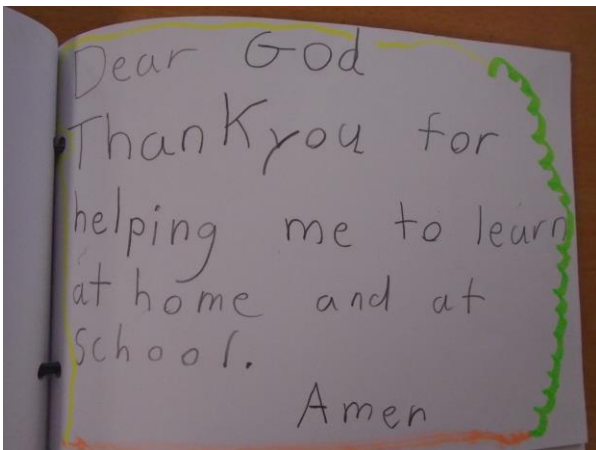 Dear God
Thank you for
helping me to learn
at home and at
school.
Amen